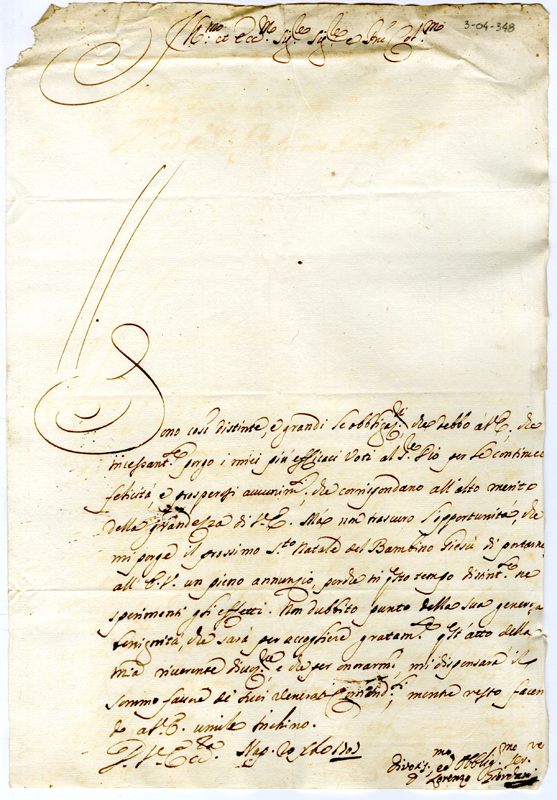 3-04-348
Ill.mo et Ecc.mo Sig.re Sig.re e
Sono così distinte, e grandi le obbligaz.ni che debbo à V.E., che
incessant.te porgo i miei più efficaci Voti al S.r Dio per le continue
felicità, e prosperosi avvenim.ti, che corrispondano all'alto merito
della grandezza di V.E. Mà non trascuro l'opportunità, che
mi porge il prossimo S.to Natale del Bambino Giesù di portarne
all'E.V. un pieno annunzio, perche in q.sto tempo distint.te ne
sperimenti gli effetti. Non dubbito punto della sua generosa
benignità, che sarà per accogliere gratam.te quest'atto della
mia riverente e che per onorarmi, mi dispensarà il
sommo favore de suoi mentre resto facen
do a V.E. umile inchino.
Di V. Ecc.za
divotis.mo, ed obblig.mo Ser.
Lorenzo